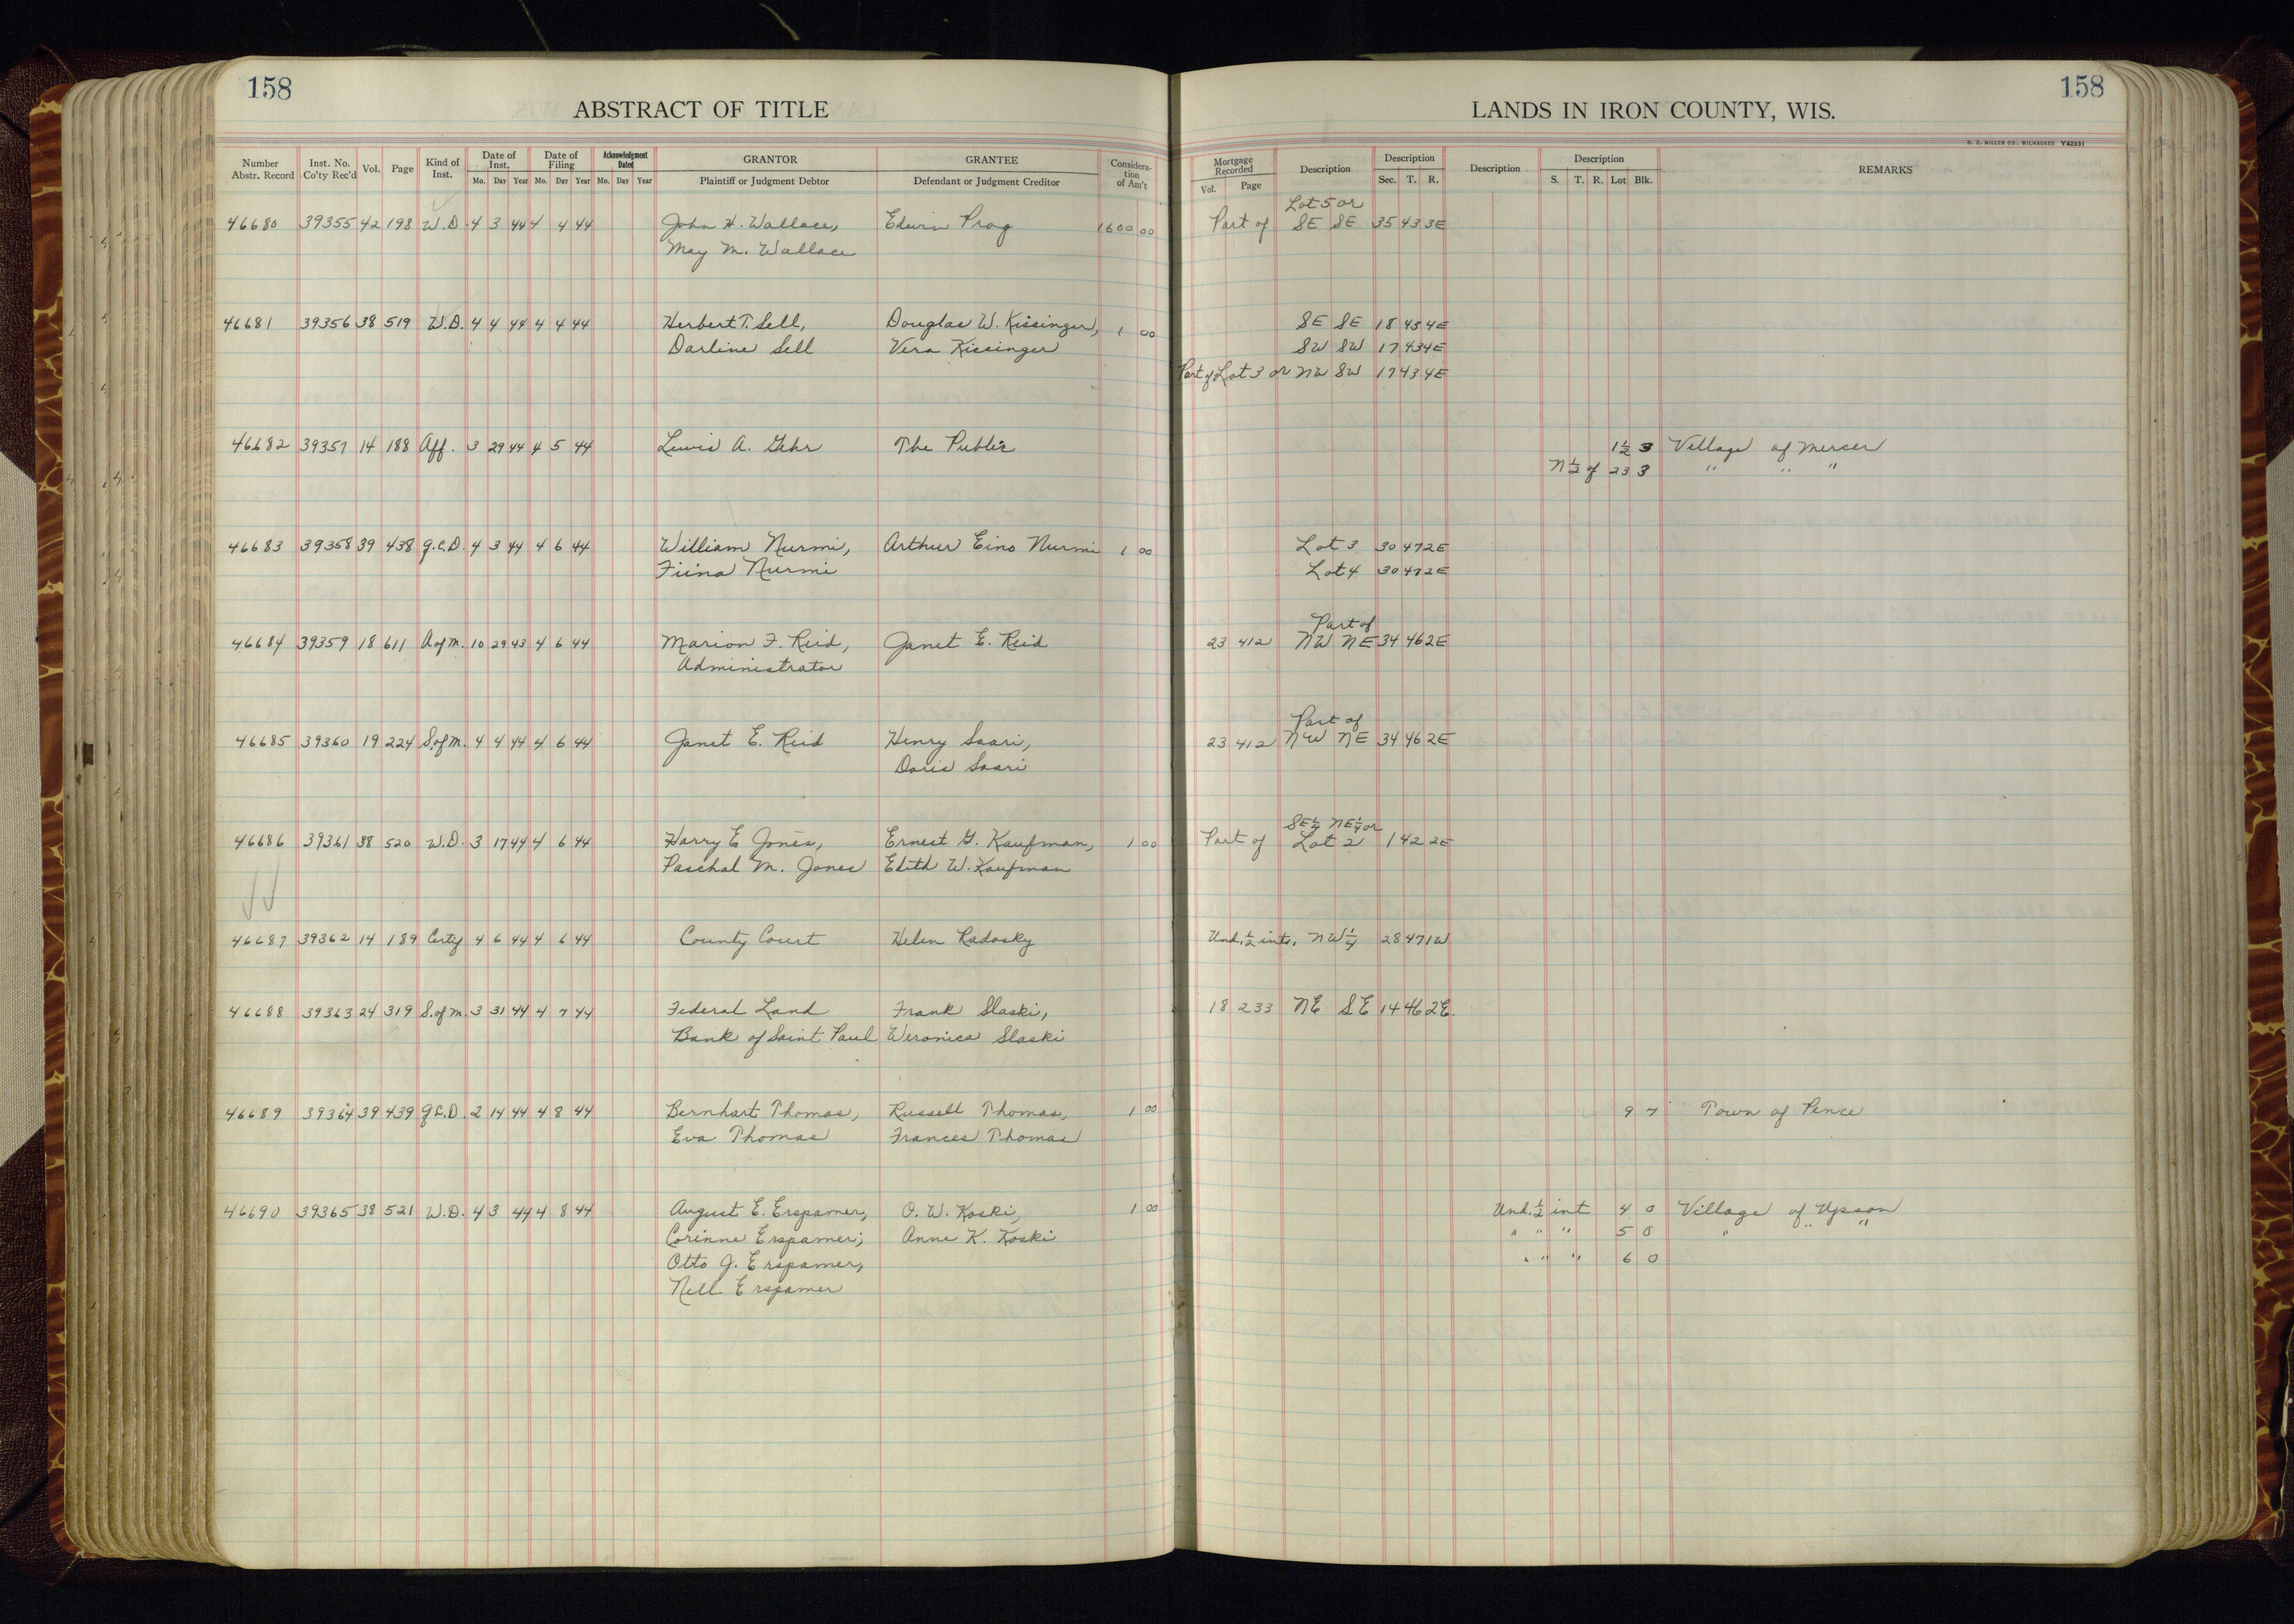 158
ABSTRACT OF TITLE
Number Abstr. Record | Inst. No. Co'ty Rec'd | Vol. | Page | Kind of Inst. | Date of Inst. Mo. Day Year | Date of Filing Mo. Day Year | Acknowledgment Dated Mo. Day Year | GRANTOR Plaintiff or Judgment Debtor | GRANTEE Defendant or Judgment Creditor | Considera-tion of Am't
158
LANDS IN IRON COUNTY, WIS.
H. C. MILLER CO., MILWAUKEE Y42931
Mortgage Recorded Vol. Page | Description | Description Sec. T. R. | Description | Description S. T. R. Lot Blk. | REMARKS
Lot 5 or
46680 39355 42 198 W.D. 4 3 44 4 4 44 John H. Wallace, Edwin Prog 1600 00 Part of SE SE 35 43 3E
May M. Wallace
46681 39356 38 519 W.D. 4 4 44 4 4 44 Herbert T. Sell, Douglas W. Kissinger, 1 00 SE SE 18 43 4E
Darline Sell Vera Kissinger SW SW 17 43 4E
Part of Lot 3 or NW SW 17 43 4E
46682 39357 14 188 Aff. 3 29 44 4 5 44 Lewis A. Gehr The Public 1 1/2 3 Village of Mercer
N 1/2 of 23 3 " " "
46683 39358 39 438 Q.C.D. 4 3 44 4 6 44 William Nurmi, Arthur Eino Nurmi 1 00 Lot 3 30 47 2E
Fiina Nurmi Lot 4 30 47 2E
Part of
46684 39359 18 611 A of M. 10 29 43 4 6 44 Marion F. Reid, Janet E. Reid 23 412 NW NE 34 46 2E
Administrator
Part of
46685 39360 19 224 S. of M. 4 4 44 4 6 44 Janet E. Reid Henry Saari, 23 412 NW NE 34 46 2E
Doris Saari
SE 1/4 NE 1/4 or
46686 39361 38 520 W.D. 3 17 44 4 6 44 Harry E Jones, Ernest G. Kaufman, 1 00 Part of Lot 2 1 42 2E
Paschal M. Jones Edith W. Kaufman
46687 39362 14 189 Certf 4 6 44 4 6 44 County Court Helen Radosky Und. 1/2 ints. NW 1/4 28 47 1W
46688 39363 24 319 S. of M. 3 31 44 4 7 44 Federal Land Frank Slaski, 18 233 NE SE 14 46 2E.
Bank of Saint Paul Weronica Slaski
46689 39364 39 439 Q.C.D. 2 14 44 4 8 44 Bernhart Thomas, Russell Thomas, 1 00 9 7 Town of Pence
Eva Thomas Frances Thomas
46690 39365 38 521 W.D. 4 3 44 4 8 44 August E. Erspamer, O. W. Koski, 1 00 Und. 1/2 int 4 0 Village of Upson
Corinne Erspamer; Anne K. Koski " " " 5 0 " " "
Otto J. Erspamer, " " " 6 0
Nell Erspamer